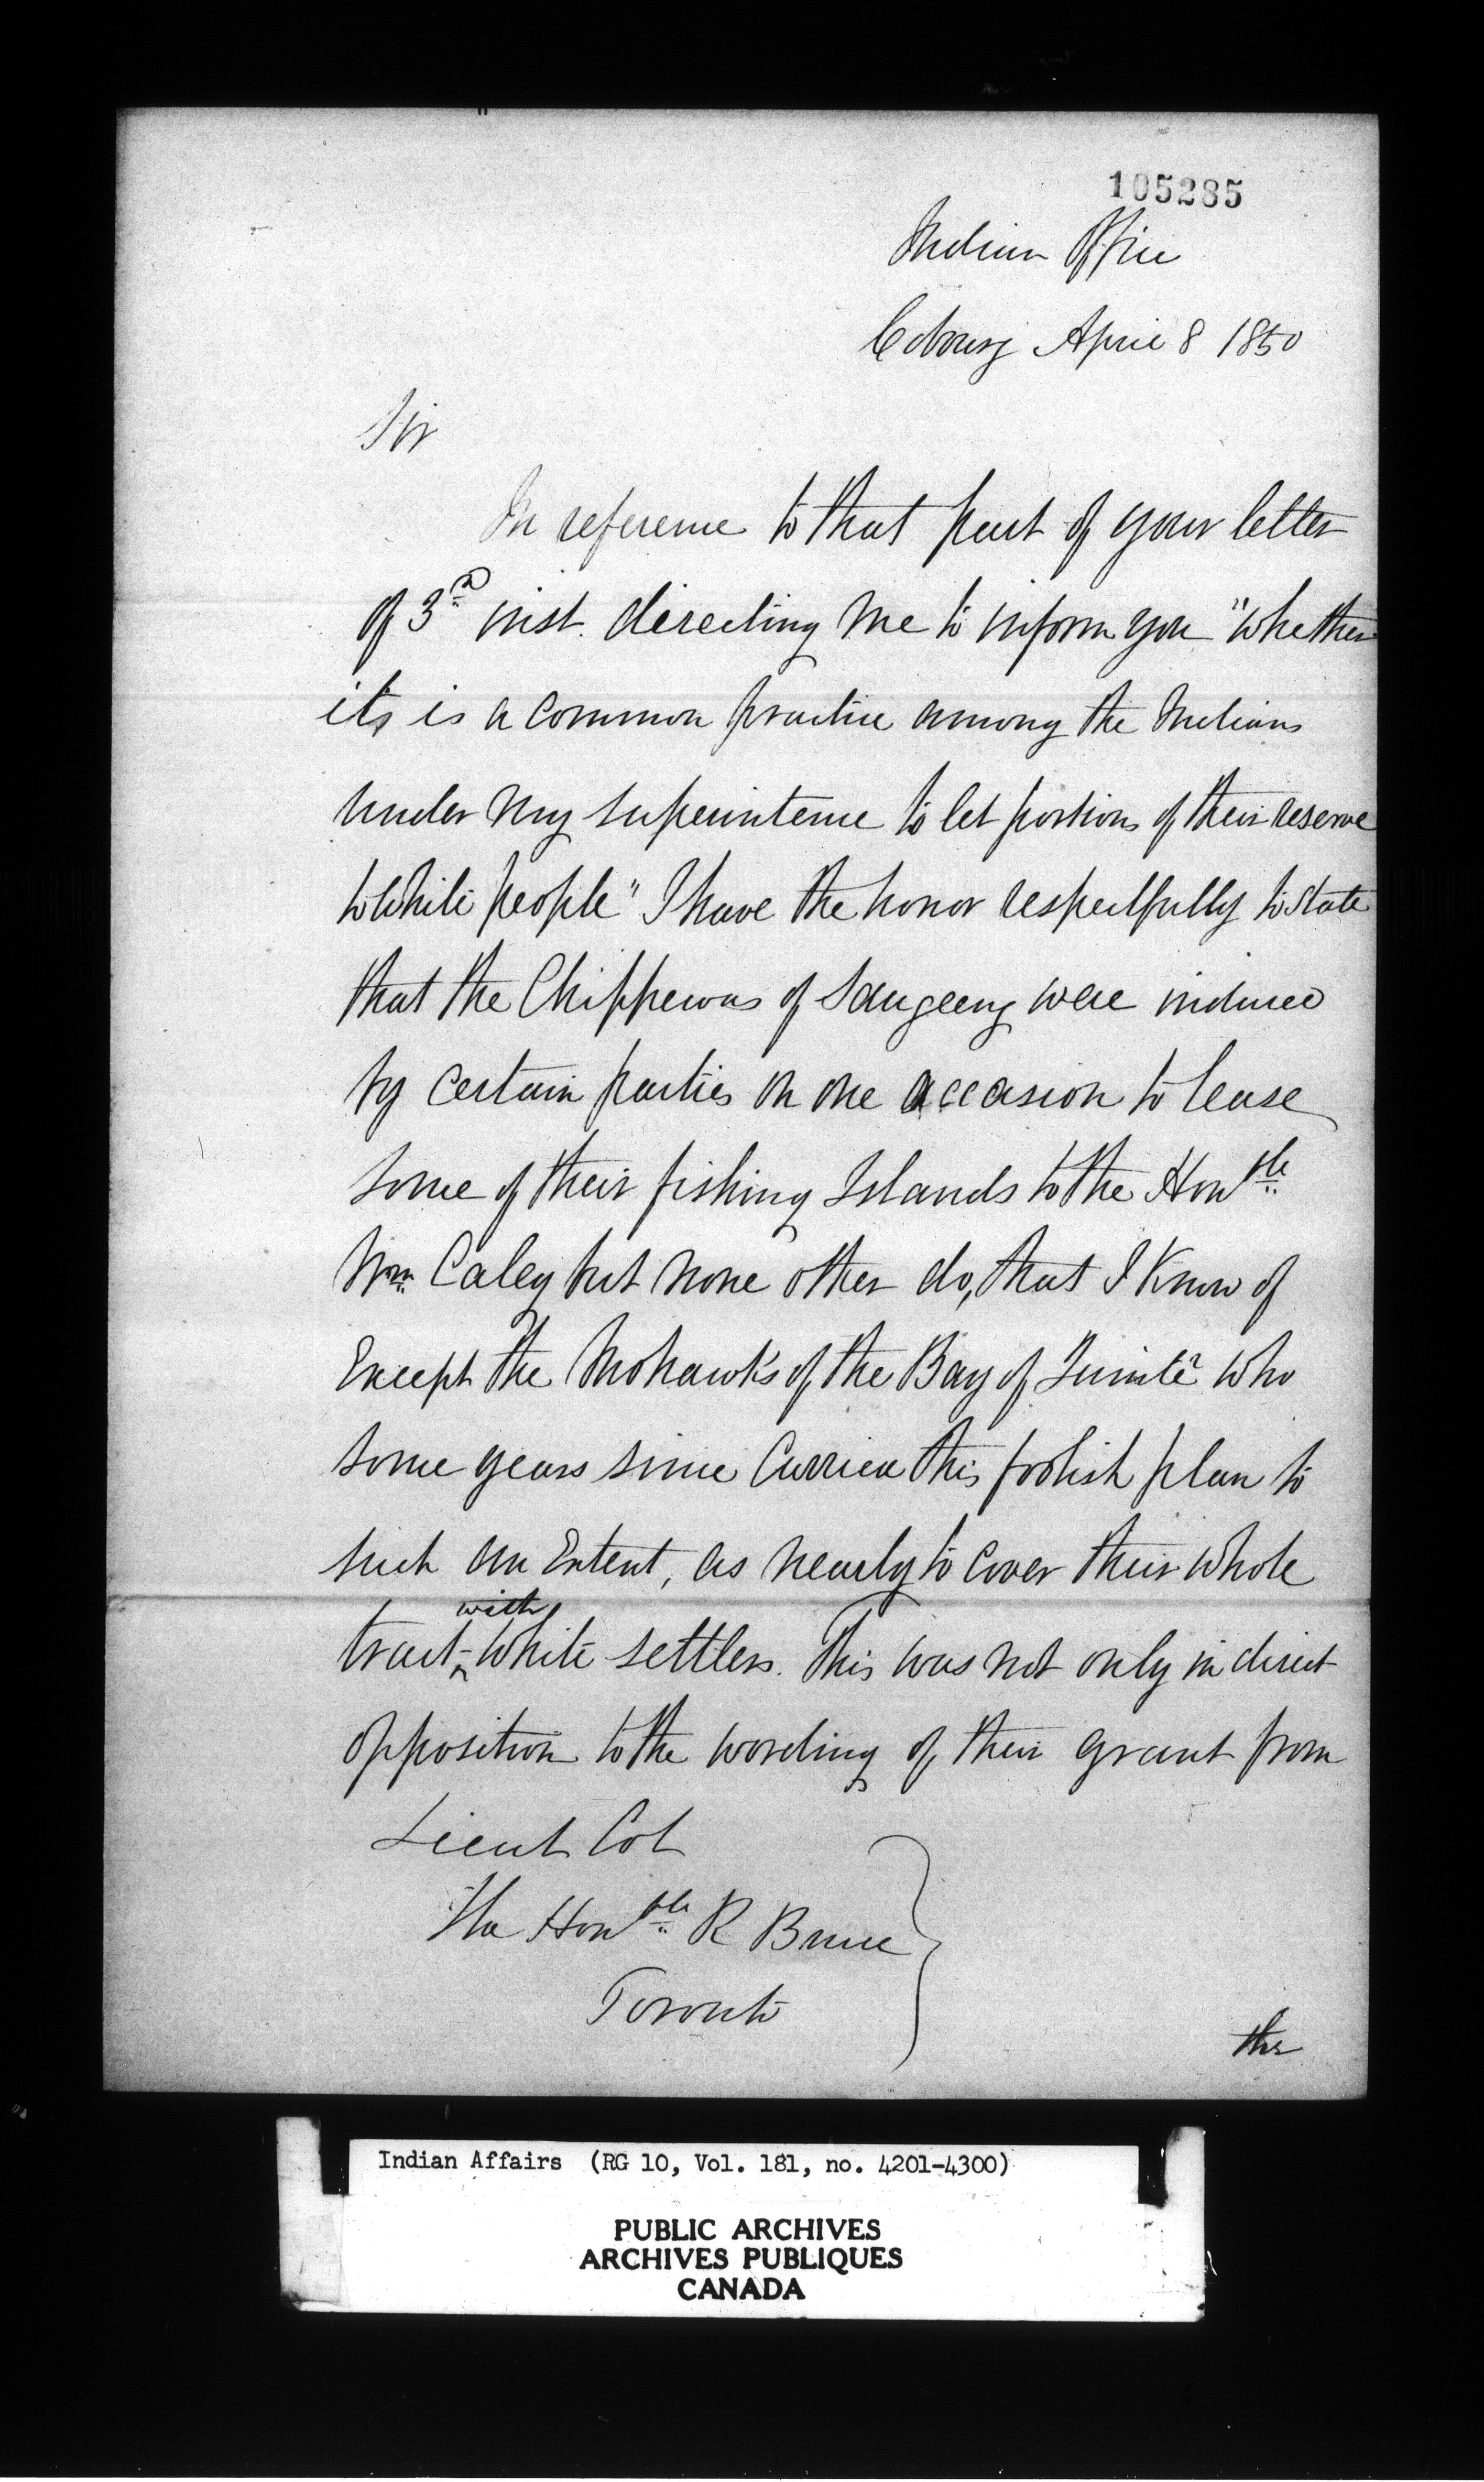 105285
Indian Office
Cobourg April 8 1850
Sir
In reference to that part of your letter
of 3d inst. directing me to inform you "whether
its is a common practice among the Indians
under my superintence to let portions of their reserve
to White people" I have the honor respectfully to state
that the Chippewas of Saugeeng were induced
by certain parties on one occasion to lease
some of their fishing Islands to the Honble
Wm Caley but none other do, that I know of
Except the Mohawks of the Bay of Quinté who
some years since Carried this foolish plan to
such an Extent, as nearly to cover their whole
tract with White settlers. This was not only in direct
opposition to the wording of their grant from
Lieut Col
The Honble R Bruce
Toronto
the
Indian Affairs (RG 10, Vol. 181, no. 4201-4300)
PUBLIC ARCHIVES
ARCHIVES PUBLIQUES
CANADA